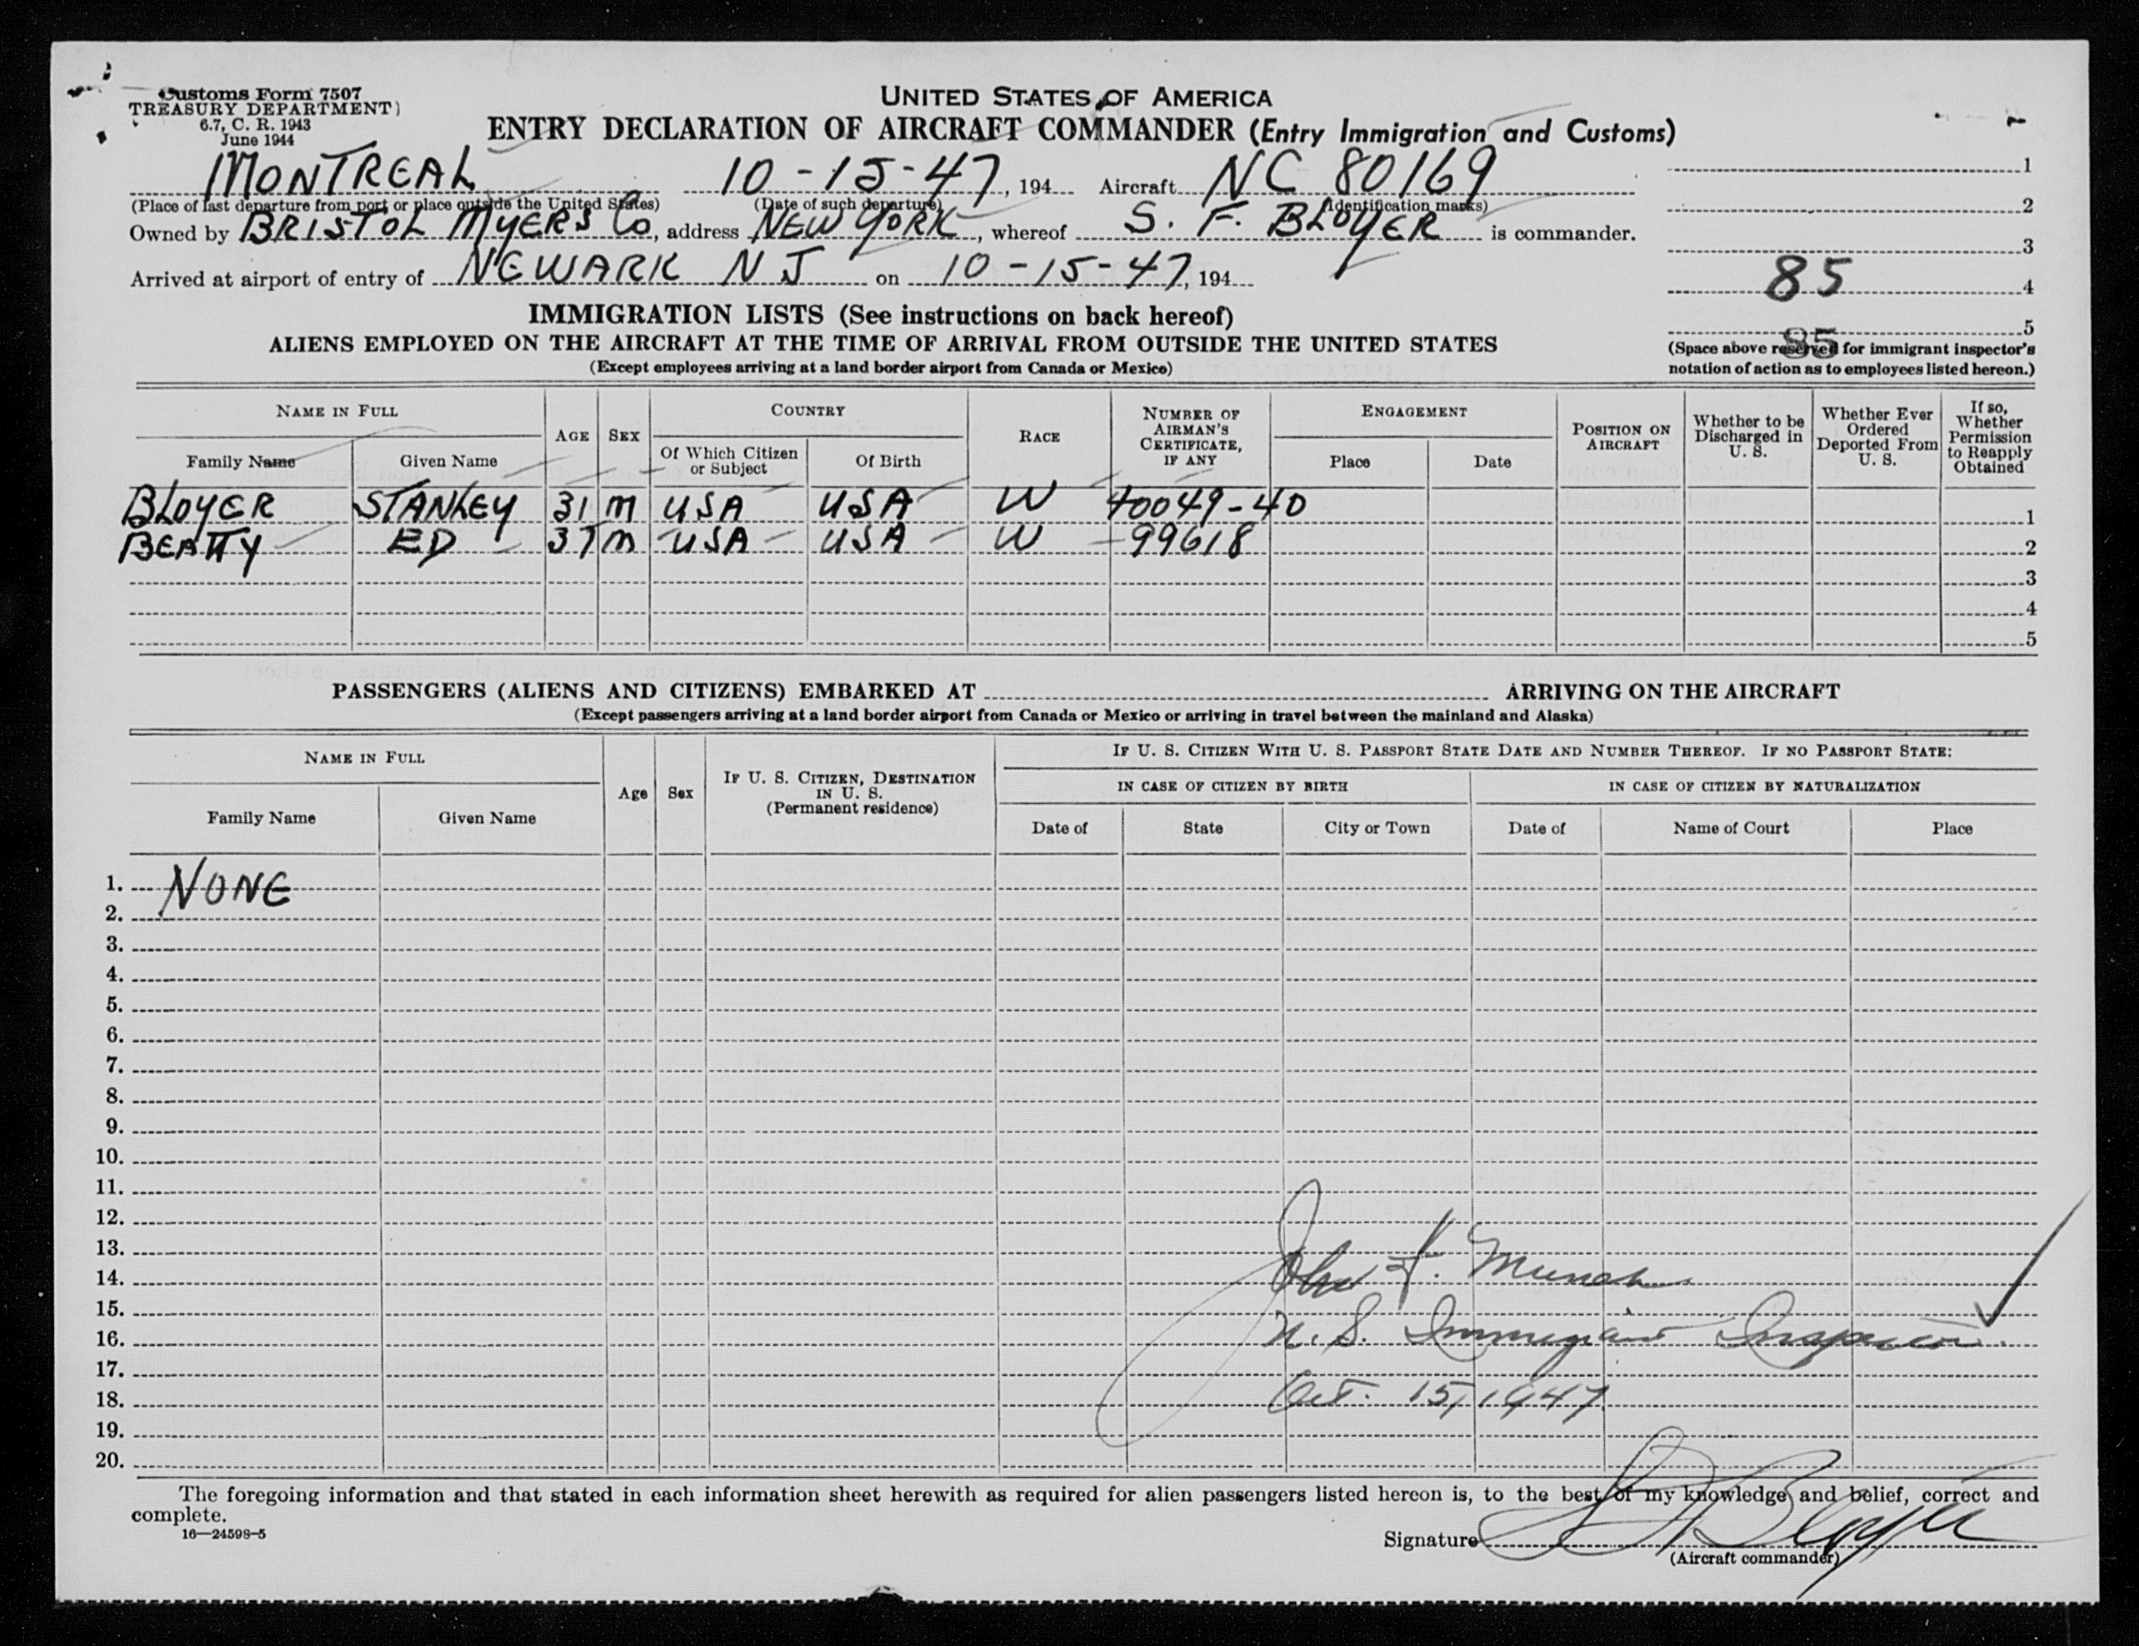 Customs Form 7507
TREASURY DEPARTMENT)
6.7, C. R. 1943
June 1944
UNITED STATES OF AMERICA
ENTRY DECLARATION OF AIRCRAFT COMMANDER (Entry Immigration and Customs)
MONTREAL 10-15-47, 194 Aircraft NC 80169
(Place of last departure from port or place outside the United States) (Date of such departure) (Identification marks)
Owned by BRISTOL MYERS Co, address NEW YORK, whereof S. F. BLOYER is commander.
Arrived at airport of entry of NEWARK N J on 10-15-47, 194
1
2
3
85 4
5
85
(Space above reserved for immigrant inspector's
notation of action as to employees listed hereon.)
IMMIGRATION LISTS (See instructions on back hereof)
ALIENS EMPLOYED ON THE AIRCRAFT AT THE TIME OF ARRIVAL FROM OUTSIDE THE UNITED STATES
(Except employees arriving at a land border airport from Canada or Mexico)
NAME IN FULL
Family Name Given Name
AGE SEX
COUNTRY
Of Which Citizen or Subject
Of Birth
RACE
NUMBER OF AIRMAN'S CERTIFICATE, IF ANY
ENGAGEMENT
Place Date
POSITION ON AIRCRAFT
Whether to be Discharged in U. S.
Whether Ever Ordered Deported From U. S.
If so, Whether Permission to Reapply Obtained
BLOYER STANLEY 31 M USA USA W 40049-40 1
BEATTY ED 37 M USA USA W 99618 2
3
4
5
PASSENGERS (ALIENS AND CITIZENS) EMBARKED AT ARRIVING ON THE AIRCRAFT
(Except passengers arriving at a land border airport from Canada or Mexico or arriving in travel between the mainland and Alaska)
NAME IN FULL
Family Name Given Name
Age Sex
IF U. S. CITIZEN, DESTINATION IN U. S.
(Permanent residence)
IF U. S. CITIZEN WITH U. S. PASSPORT STATE DATE AND NUMBER THEREOF. IF NO PASSPORT STATE:
IN CASE OF CITIZEN BY BIRTH IN CASE OF CITIZEN BY NATURALIZATION
Date of State City or Town Date of Name of Court Place
1. NONE
2.
3.
4.
5.
6.
7.
8.
9.
10.
11.
12.
13.
14. John F.
15.
16. U. S. Immigrant Inspector
17.
18. Oct. 15, 1947
19.
20.
The foregoing information and that stated in each information sheet herewith as required for alien passengers listed hereon is, to the best of my knowledge and belief, correct and
complete.
16—24598-5
Signature S F Bloyer
(Aircraft commander)